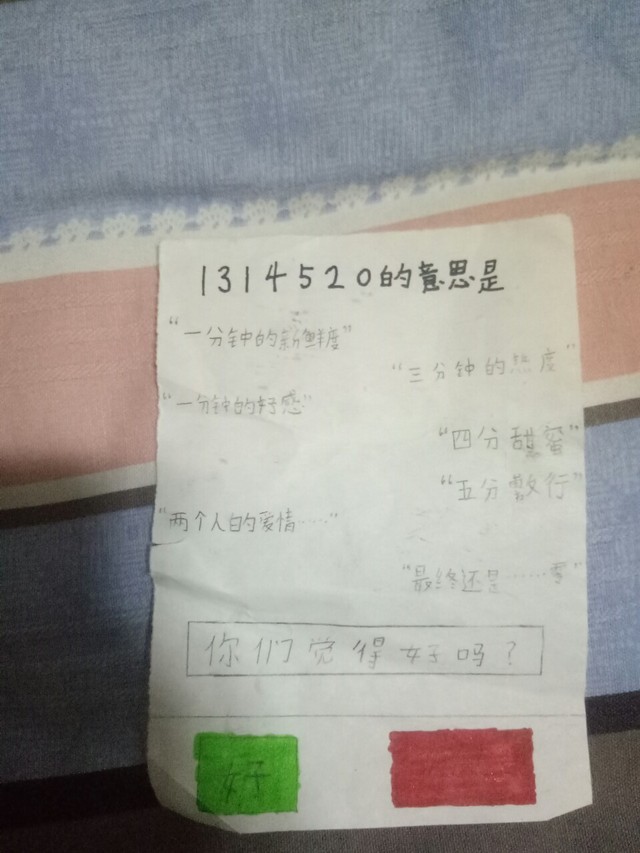 1314520的意思是
“一分钟的新鲜度”
“三分钟的热度”
“一分钟的好感”
“四分甜蜜”
“五分敷行”
“两个人的爱情……”
“最终还是……零”
你们觉得好吗？
好